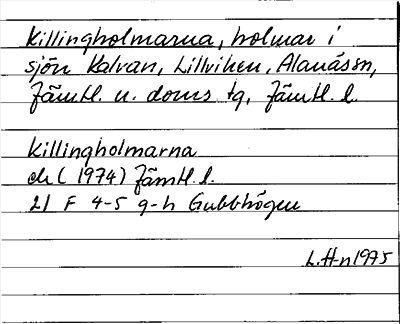 Killingholmarna, holmar i
sjön Kalvan, Lillviken, Alanässn,
Jämtl. n. doms tg, Jämtl. l.
Killingholmarna
ek (1974) Jämtl. l.
21 F 4-5 g-h Gubbhögen
L. H-n 1975